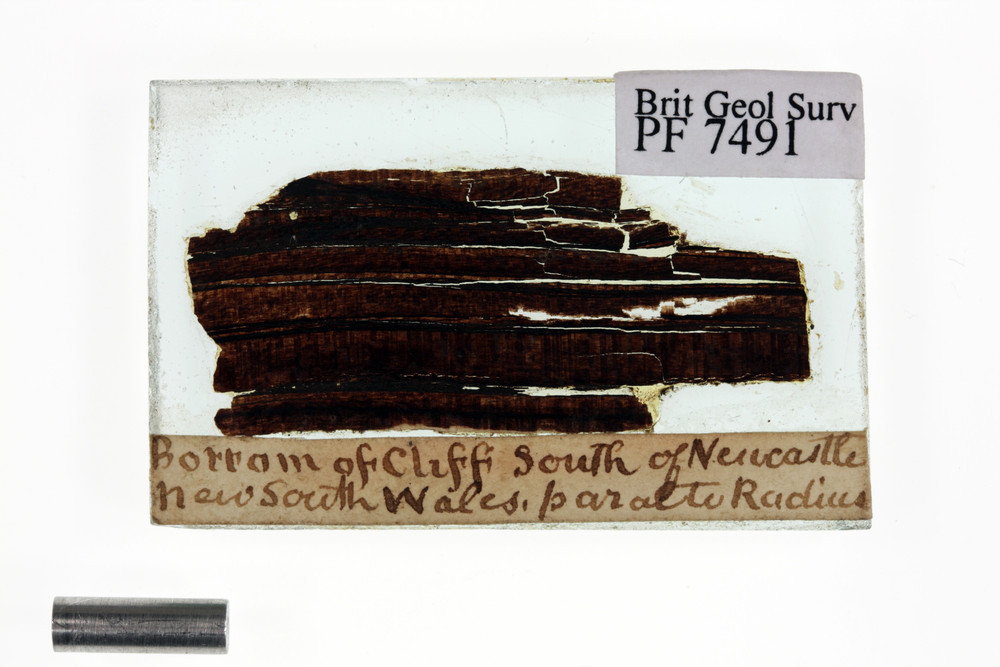 Brit Geol Surv
PF 7491
Bottom of Cliff South of Newcastle
New South Wales. paral to Radius